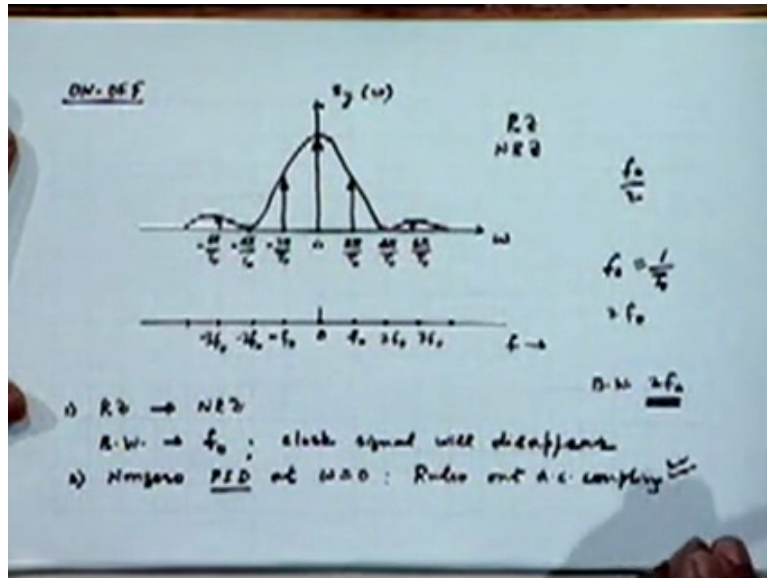 ON-OFF
Sy (ω)
RZ
NRZ
f₀/2
-6π/T₀ -4π/T₀ -2π/T₀ 0 2π/T₀ 4π/T₀ 6π/T₀ ω
f₀ = 1/T₀
2f₀
-3f₀ -2f₀ -f₀ 0 f₀ 2f₀ 3f₀ f →
B.W 2f₀
1) RZ → NRZ
B.W. → f₀ ; clock signal will disappear
2) Nonzero PSD at ω=0 : Rules out A.C. coupling